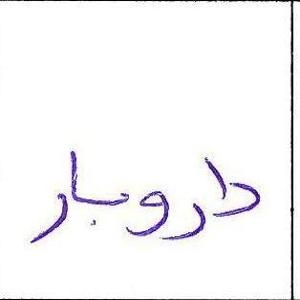 داروبار